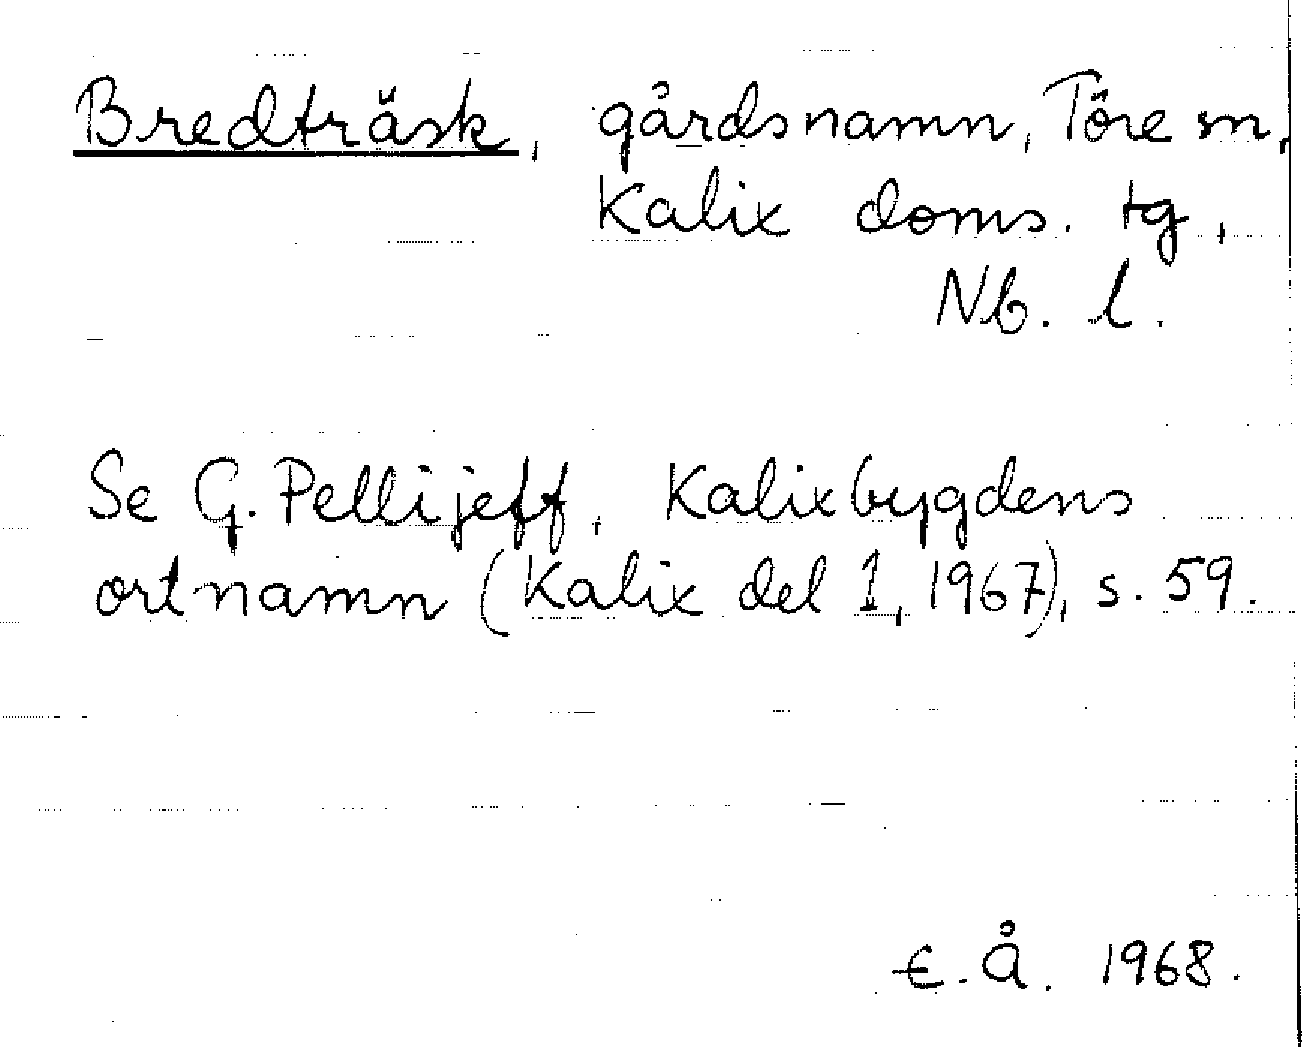 Bredträsk, gårdsnamn, Töre sn,
Kalix doms. tg,
Nb. l.
Se G. Pellijeff, Kalixbygdens
ortnamn (Kalix del 1, 1967), s. 59.
E. Å. 1968.